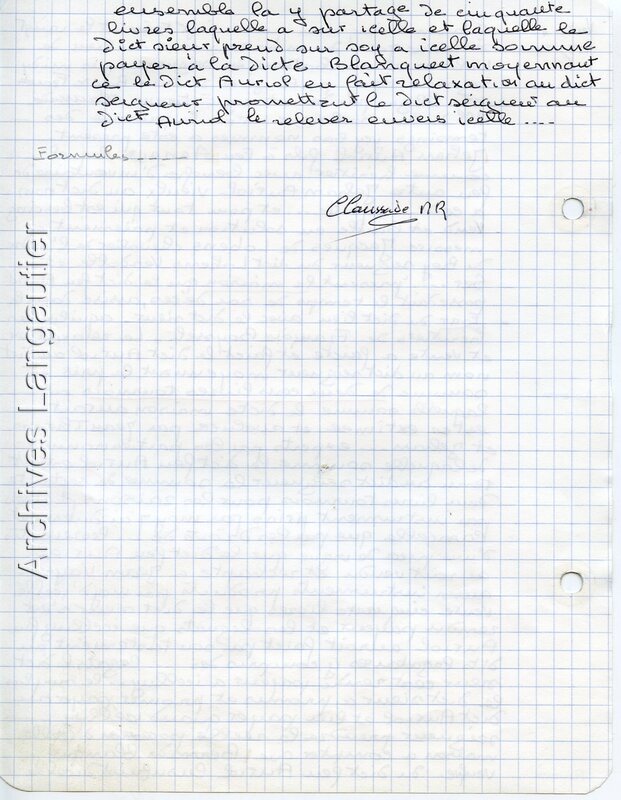 ensemble la y partage de cinquante
livres laquelle a sur icelle et laquelle le
dict sieur prend sur soy a icelle somme
payer à la dicte Blanquet moyennant
ce le dict Auriol en fait relaxation au dict
seigneur promettant le dict seigneur au
dict Auriol le relever envers icelle ....
Formules ----
Claussade NR
Archives Langautier